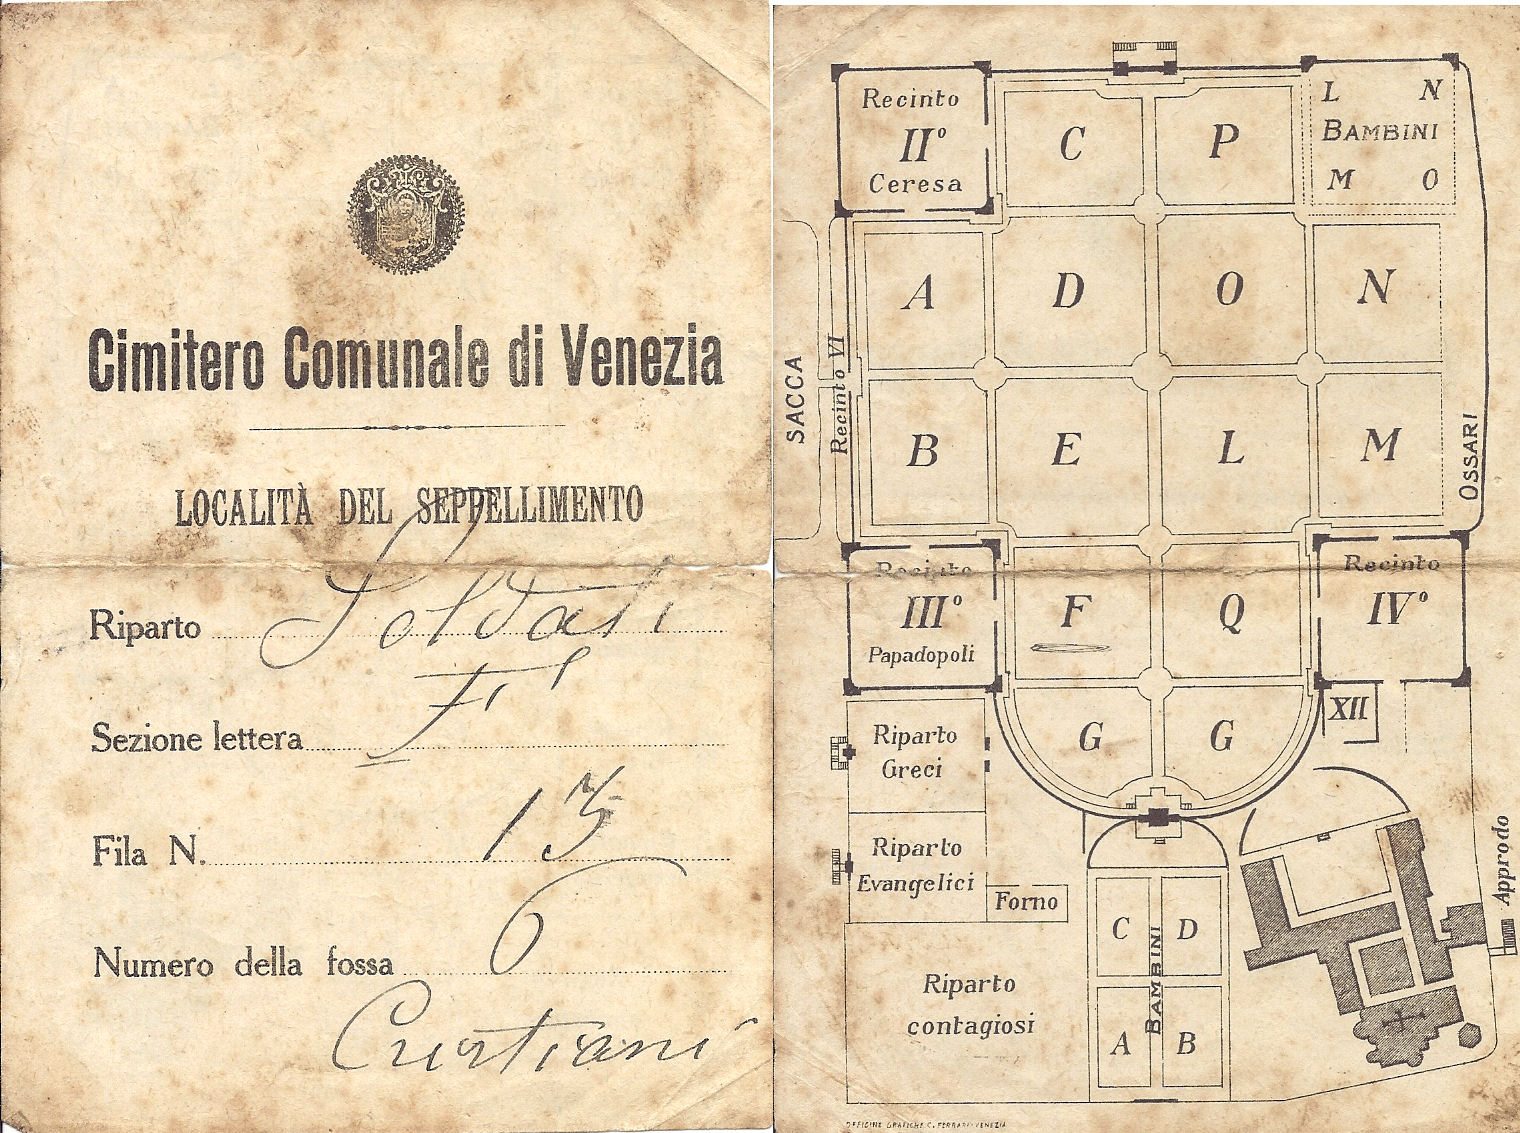 Cimitero Comunale di Venezia
LOCALITÀ DEL SEPPELLIMENTO
Riparto Soldati
Sezione lettera F
Fila N. 13
Numero della fossa 6
Recinto
IIº
Ceresa
C
P
L N
BAMBINI
M O
A
D
O
N
SACCA
Recinto VI
B
E
L
M
OSSARI
Recinto
IIIº
Papadopoli
F
Q
Recinto
IVº
XII
G
G
Riparto
Greci
Riparto
Evangelici
Forno
Approdo
C
D
BAMBINI
A
B
Riparto
contagiosi
OFFICINE GRAFICHE C. FERRARI-VENEZIA